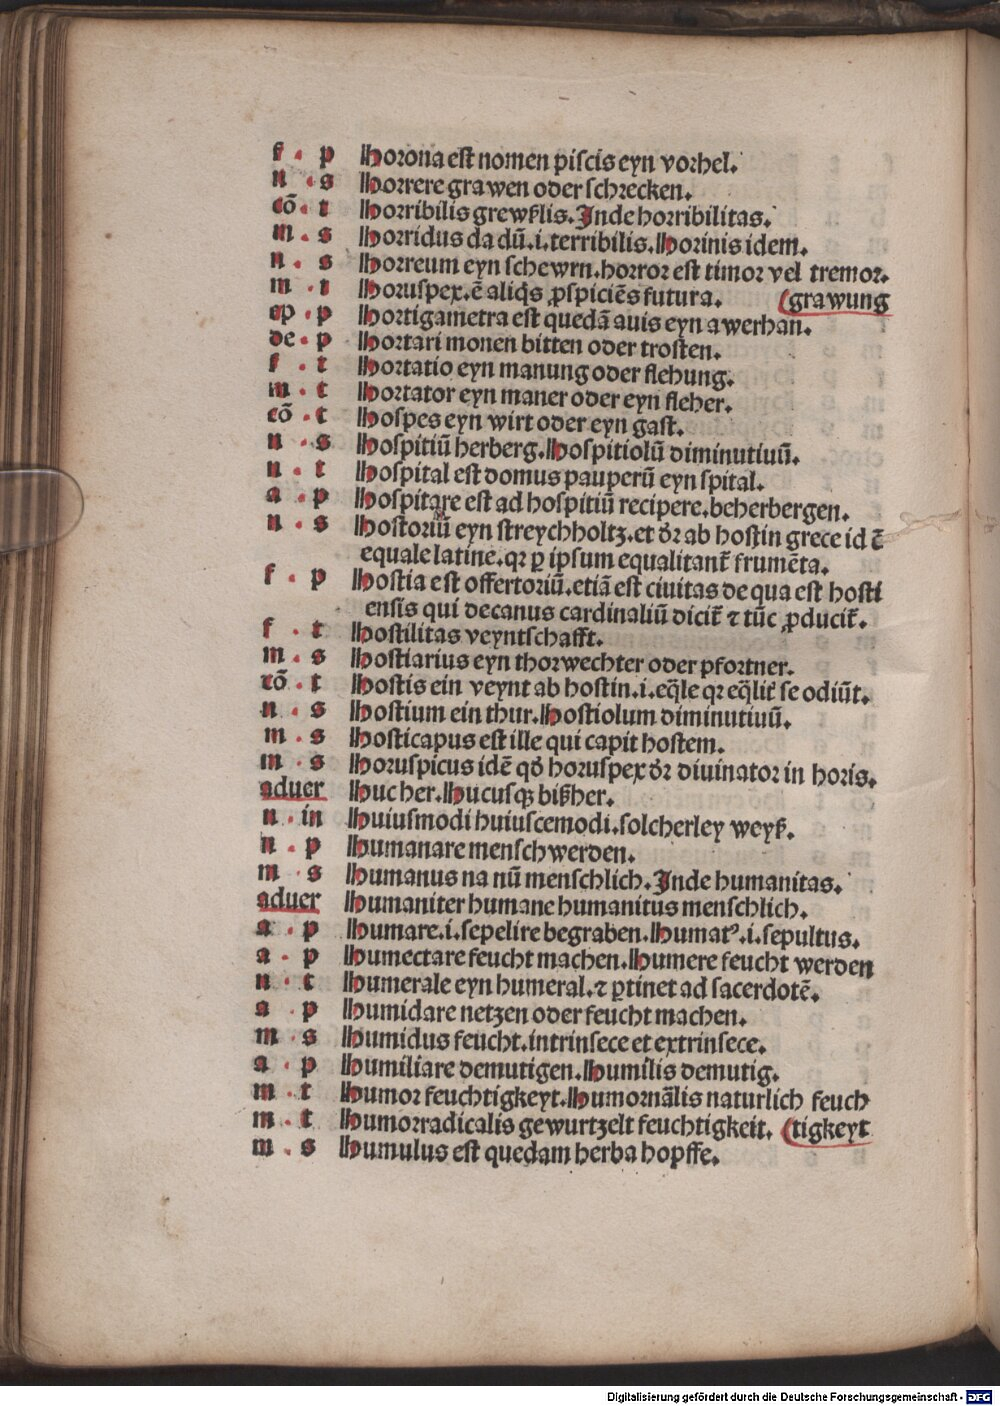 f . p Horona est nomen piscis eyn vorhel.
n . s Horrere grawen oder schrecken.
cō . t Horribilis grewßlis. Inde horribilitas.
m . s Horridus da dū .i. terribilis. Horinis idem.
n . s Horreum eyn schewrn. horror est timor vel tremor.
m . t Horuspex. ē aliq̄s ꝓspiciēs futura. (grawung
ep . p Hortigametra est quedā auis eyn awerhan.
de . p Hortari monen bitten oder trosten.
f . t Hortatio eyn manung oder flehung.
m . t Hortator eyn maner oder eyn fleher.
cō . t Hospes eyn wirt oder eyn gast.
n . s Hospitiū herberg. Hospitiolū diminutiuū.
n . t Hospital est domus pauperū eyn spital.
a . p Hospitare est ad hospitiū recipere. beherbergen.
n . s Hostoriū eyn streychholtz. et dr̄ ab hostin grece id ē
equale latine. qr ꝑ ipsum equalitant̄ frumēta.
f . p Hostia est offertoriū. etiā est ciuitas de qua est hosti
ensis qui decanus cardinaliū dicit̄ ⁊ tūc ꝓducit̄.
f . t Hostilitas veyntschafft.
m . s Hostiarius eyn thorwechter oder pfortner.
cō . t Hostis ein veynt ab hostin .i. eq̄le qr eq̄lit̄ se odiūt.
n . s Hostium ein thur. Hostiolum diminutiuū.
m . s Hosticapus est ille qui capit hostem.
m . s Horuspicus idē qd̄ horuspex dr̄ diuinator in horis.
aduer Huc her. Hucusqꝫ bißher.
n . in Huiusmodi huiuscemodi. solcherley weyß.
n . p Humanare menschwerden.
m . s Humanus na nū menschlich. Inde humanitas.
aduer Humaniter humane humanitus menschlich.
a . p Humare .i. sepelire begraben. Humatꝰ .i. sepultus.
a . p Humectare feucht machen. Humere feucht werden
n . t Humerale eyn humeral. ⁊ ꝑtinet ad sacerdotē.
a . p Humidare netzen oder feucht machen.
m . s Humidus feucht. intrinsece et extrinsece.
a . p Humiliare demutigen. Humilis demutig.
m . t Humor feuchtigkeyt. Humornālis naturlich feuch
m . t Humorradicalis gewurtzelt feuchtigkeit. (tigkeyt
m . s Humulus est quedam herba hopffe.
Digitalisierung gefördert durch die Deutsche Forschungsgemeinschaft - DFG